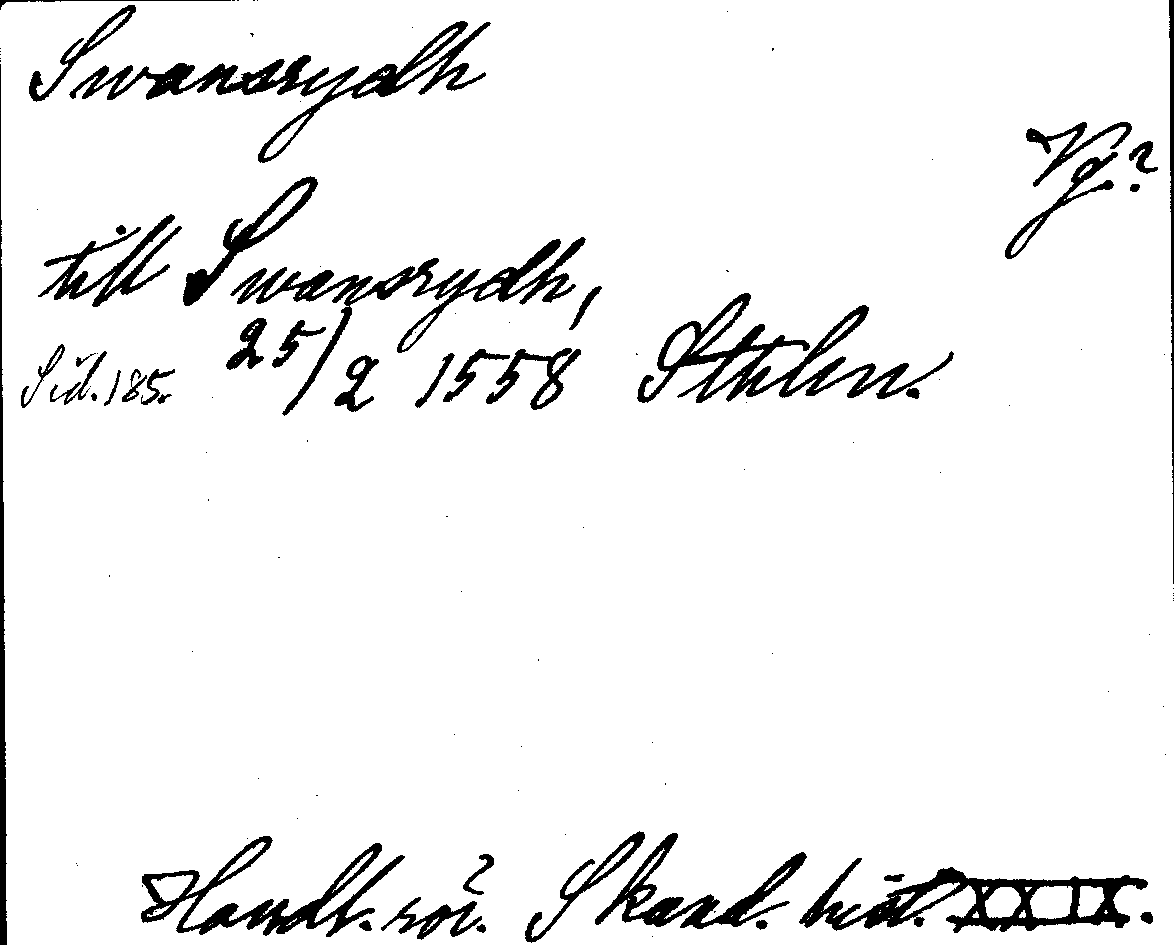 Swansrydh
Vg.?
till Swansrydh,
Sid. 185. 25/2 1558 Sthlm.
Handl. rör. Skand. hist. XXIX.